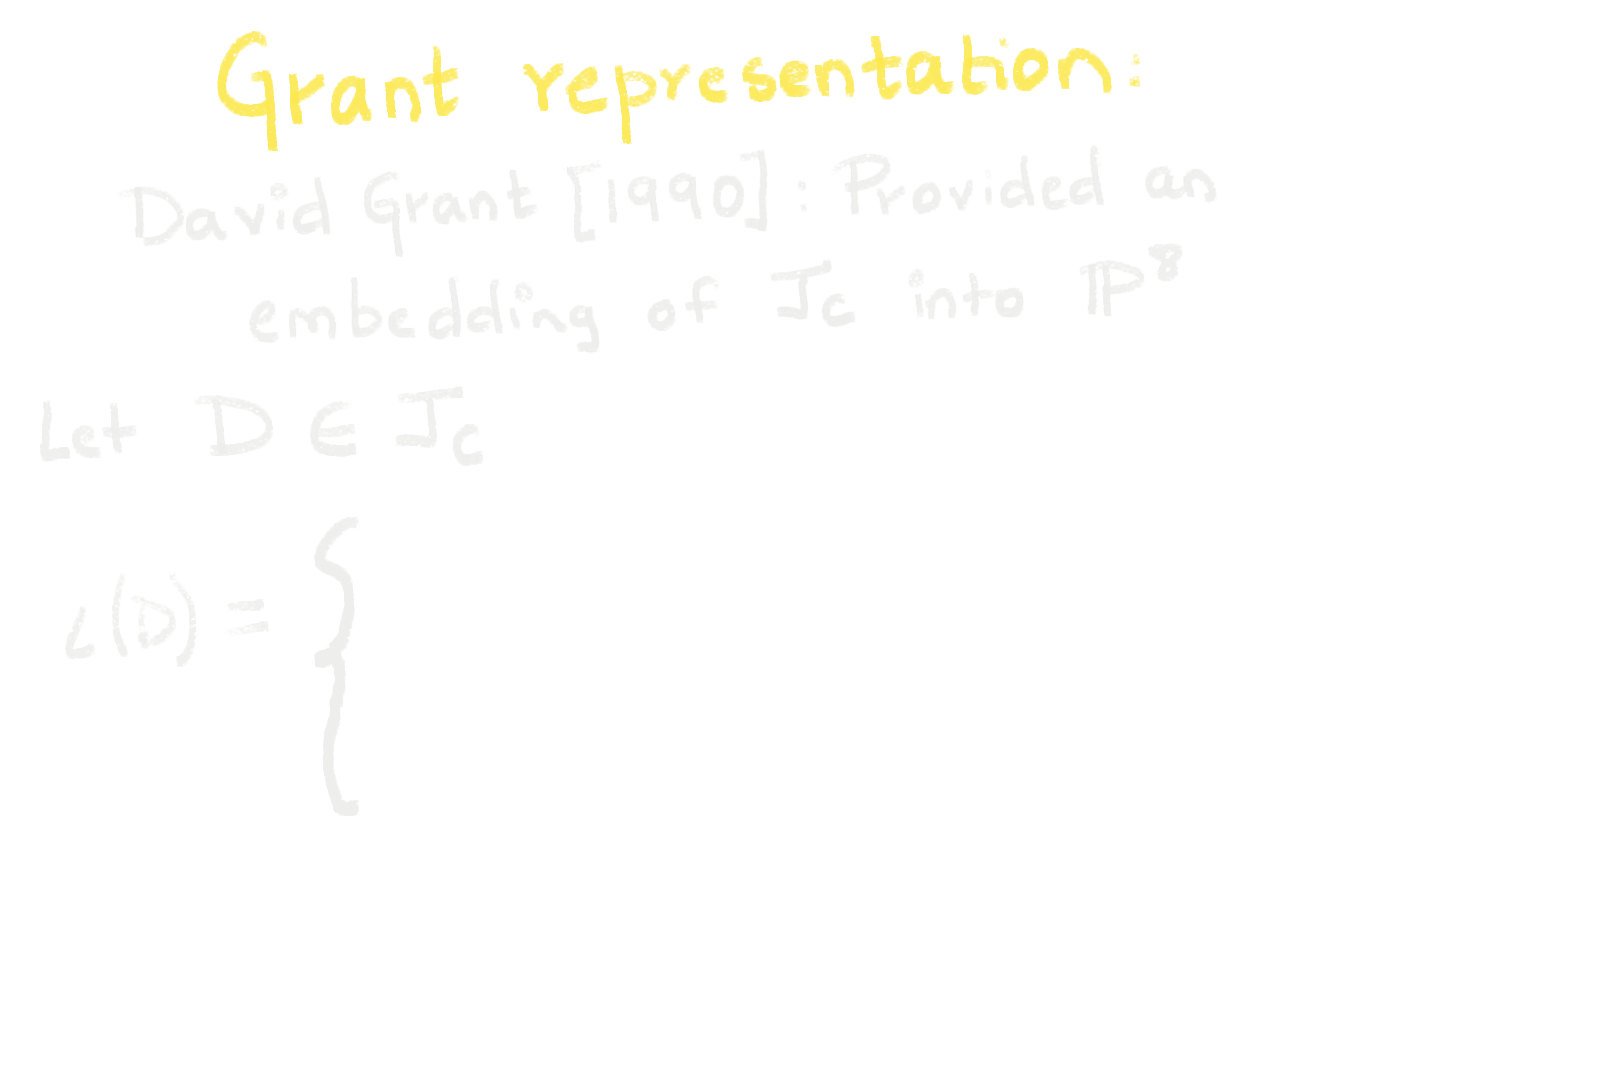 Grant representation:
David Grant [1990]: Provided an
embedding of J_C into ℙ⁸
Let D ∈ J_C
L(D) = {